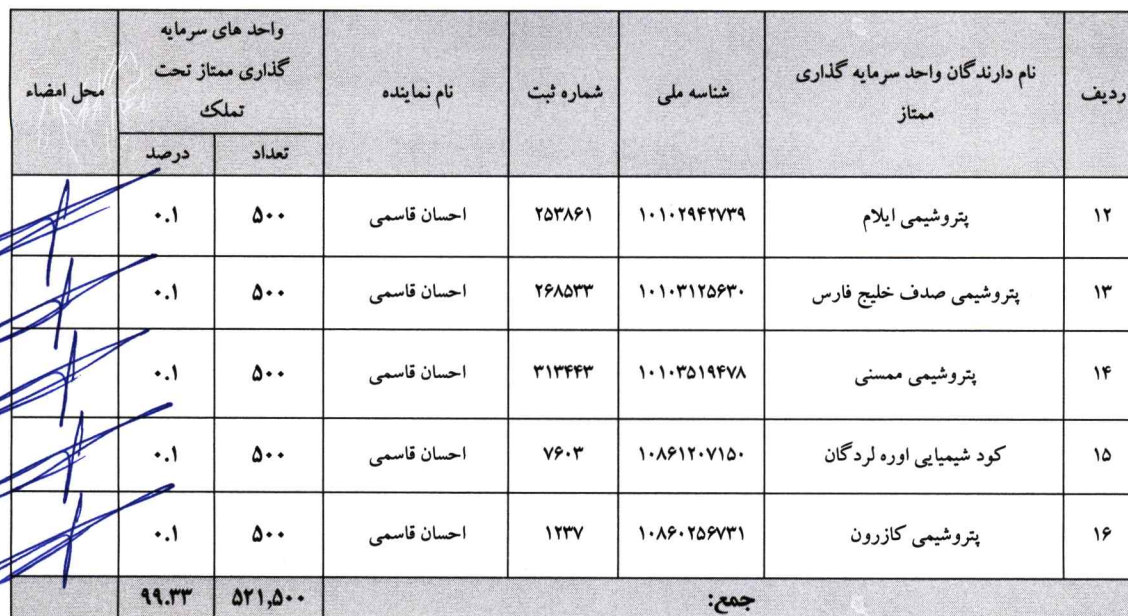 ردیف
نام دارندگان واحد سرمایه گذاری
ممتاز
شناسه ملی
شماره ثبت
نام نماینده
واحد های سرمایه
گذاری ممتاز تحت
تملک
تعداد
درصد
محل امضاء
۱۲ پتروشیمی ایلام ۱۰۱۰۲۹۴۲۷۳۹ ۲۵۳۸۶۱ احسان قاسمی ۵۰۰ ۰.۱
۱۳ پتروشیمی صدف خلیج فارس ۱۰۱۰۳۱۲۵۶۳۰ ۲۶۸۵۳۳ احسان قاسمی ۵۰۰ ۰.۱
۱۴ پتروشیمی ممسنی ۱۰۱۰۳۵۱۹۴۷۸ ۳۱۳۴۴۳ احسان قاسمی ۵۰۰ ۰.۱
۱۵ کود شیمیایی اوره لردگان ۱۰۸۶۱۲۰۷۱۵۰ ۷۶۰۳ احسان قاسمی ۵۰۰ ۰.۱
۱۶ پتروشیمی کازرون ۱۰۸۶۰۲۵۶۷۳۱ ۱۲۳۷ احسان قاسمی ۵۰۰ ۰.۱
جمع: ۵۲۱,۵۰۰ ۹۹.۳۳